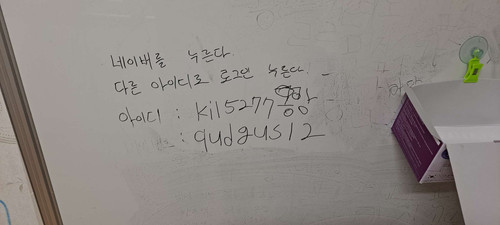 네이버를 누른다.
다른 아이디로 로그인 누른다.
아이디 : kil5277
: qudgus12